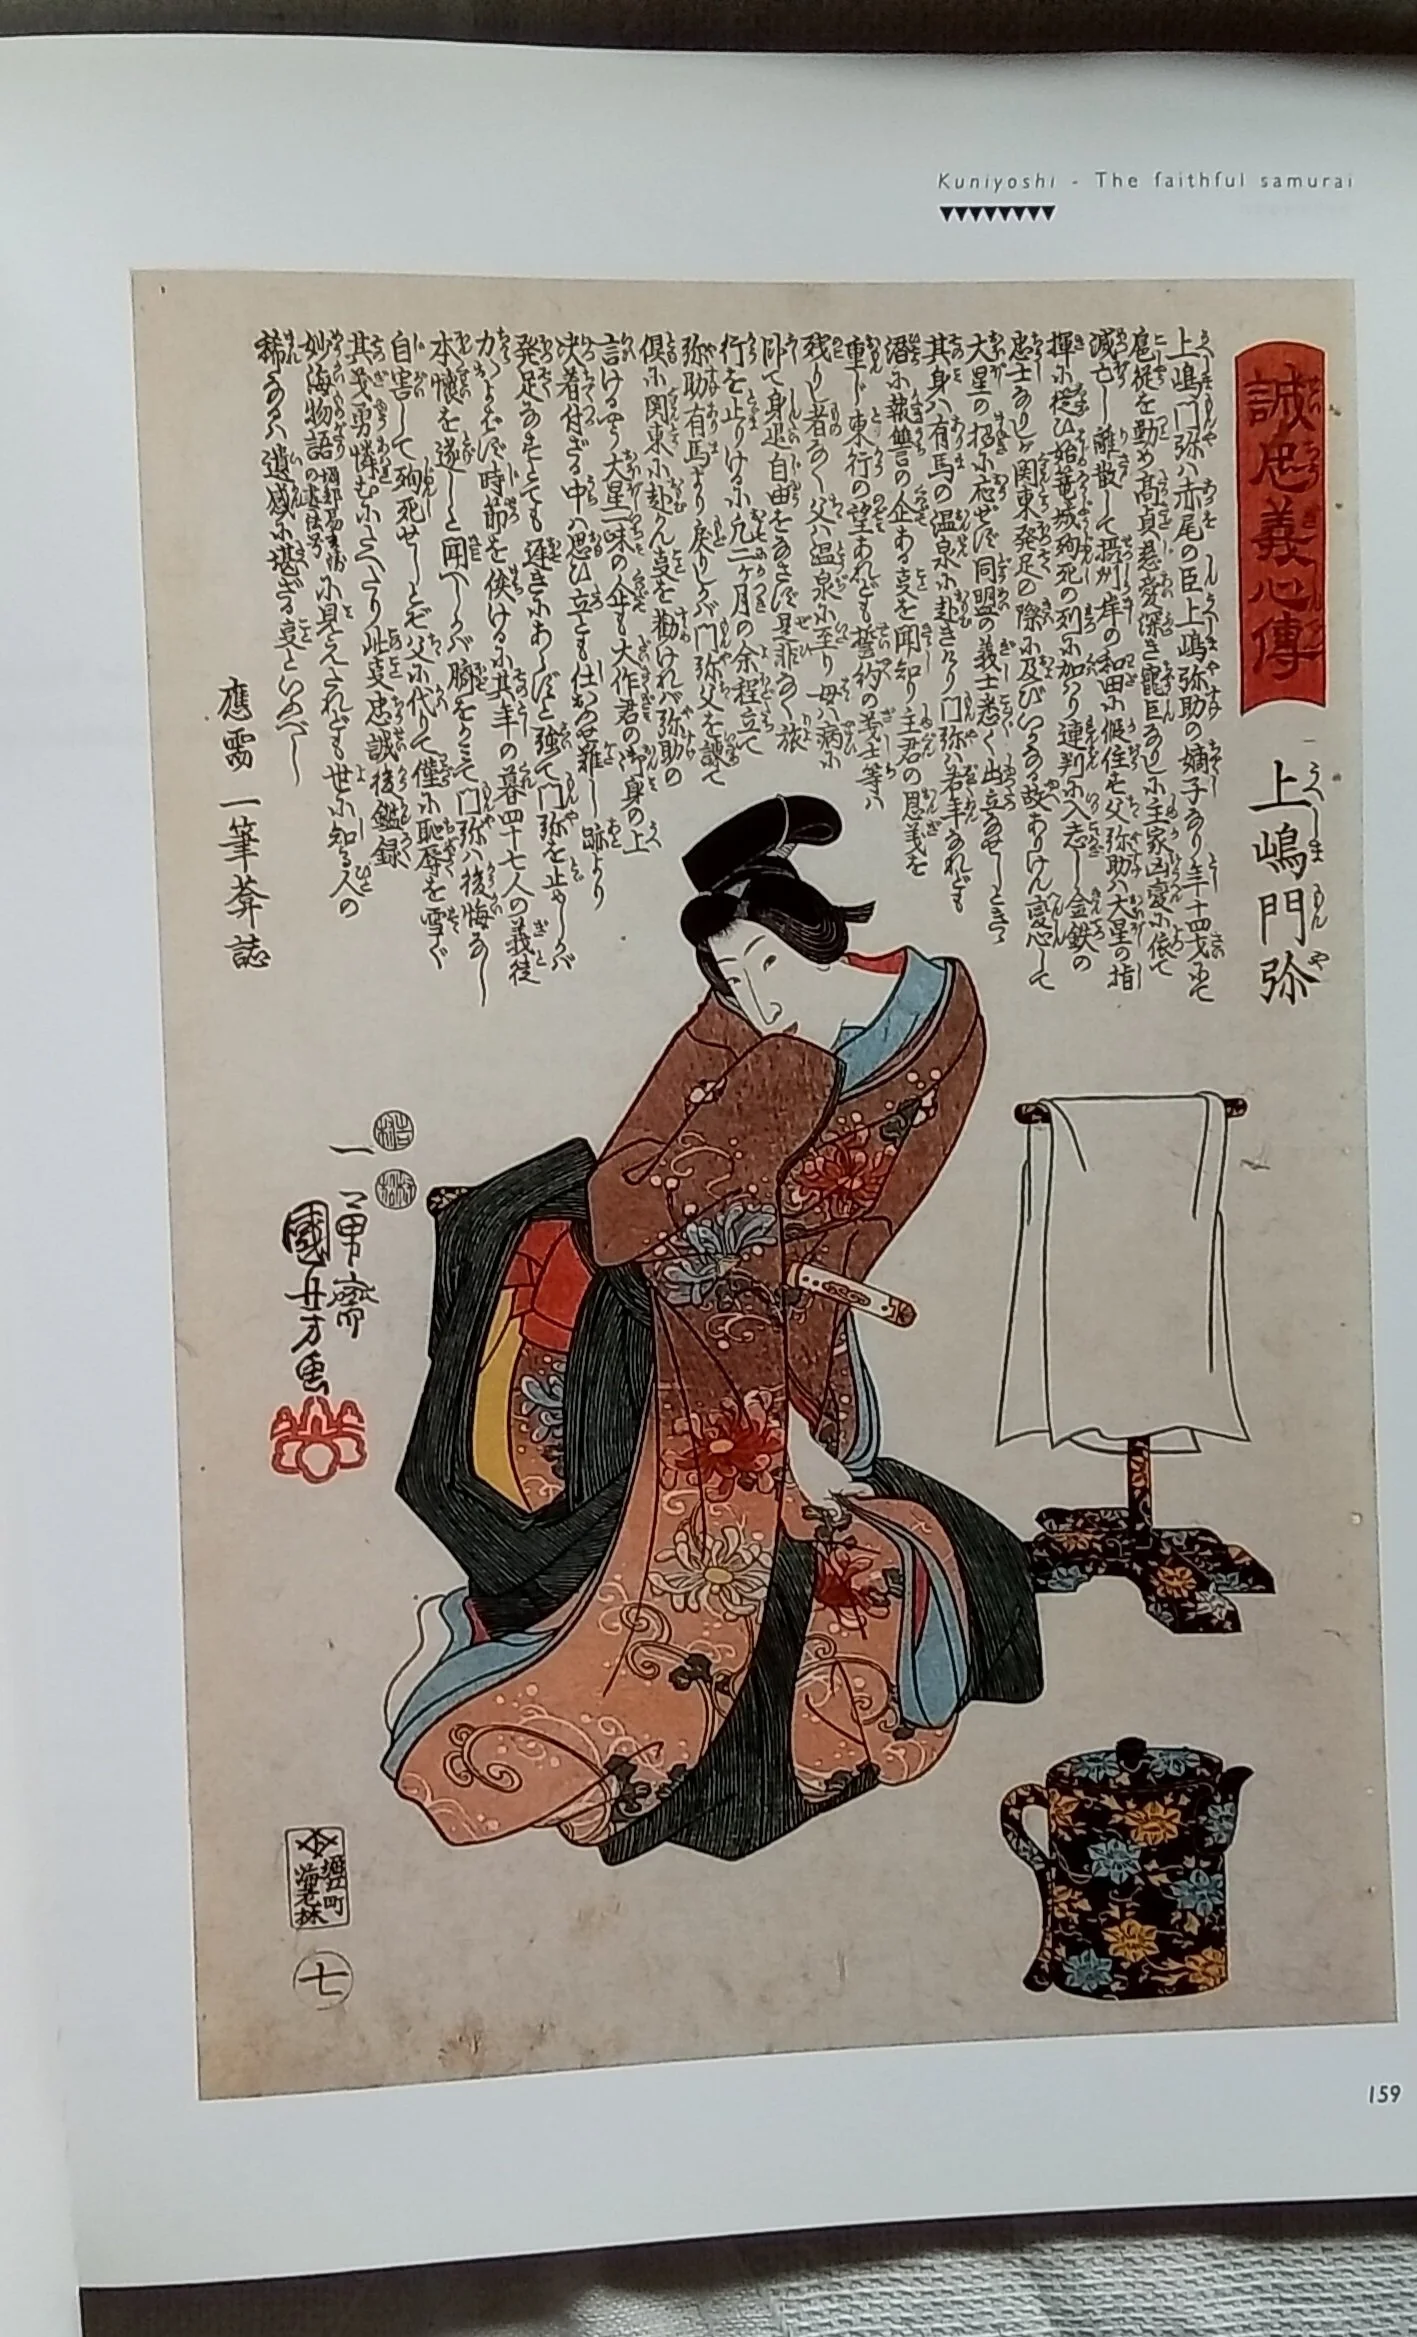 Kuniyoshi - The faithful samurai
誠忠義心傳
上嶋門弥
上嶋門弥ハ赤尾の臣上嶋弥助の嫡子なり年十四才にて
扈従を勤め高貞慈愛深き寵臣なりし小主家凶変小依て
滅亡し離散して摂州岸の和田小仮住も父弥助ハ大星の指
揮小従ひ始篭城殉死の列小加り連判小入忠し金鉄の
忠士なりしが関東発足の際小及びいかなる故ありけん変心して
大星の招小応ぜず同盟の義士悉く出立なせしときハ
其身ハ有馬の温泉小赴きけり門弥ハ若年なれども
潜小報讐の企ある事を聞知り主君の恩義を
重じ東行の望あれども誓約の義士等ハ
残りし者なく父ハ温泉小至り母ハ病小
臥て身退自由をなさず是非なく旅
行を止りける小凡二ヶ月の余程立て
弥助有馬より戻りしかバ門弥父を諌て
倶小関東小赴かん事を勧けれバ弥助の
言けるやう大星一味の企も大作君の御身の上
決着付ざる中ハ思ひ立とも仕おふせ難し跡より
発足なすとても遅きにあらずと強て門弥を止めしかバ
力およバず時節を俟ける小其年の暮四十七人の義徒
本懐を遂しと聞へしかバ胸をうちて門弥ハ後悔なし
自害して殉死せしとぞ父小代りて僅小恥辱を雪ぐ
其義勇憐むにたへたり此事忠誠後鑑録
妙海物語 小見えされども世小知る人の
稀なるハ遺感小堪ざる事といふべし
應需 一筆葊誌
一勇齋
國芳画
堀江町
海老林
七
159